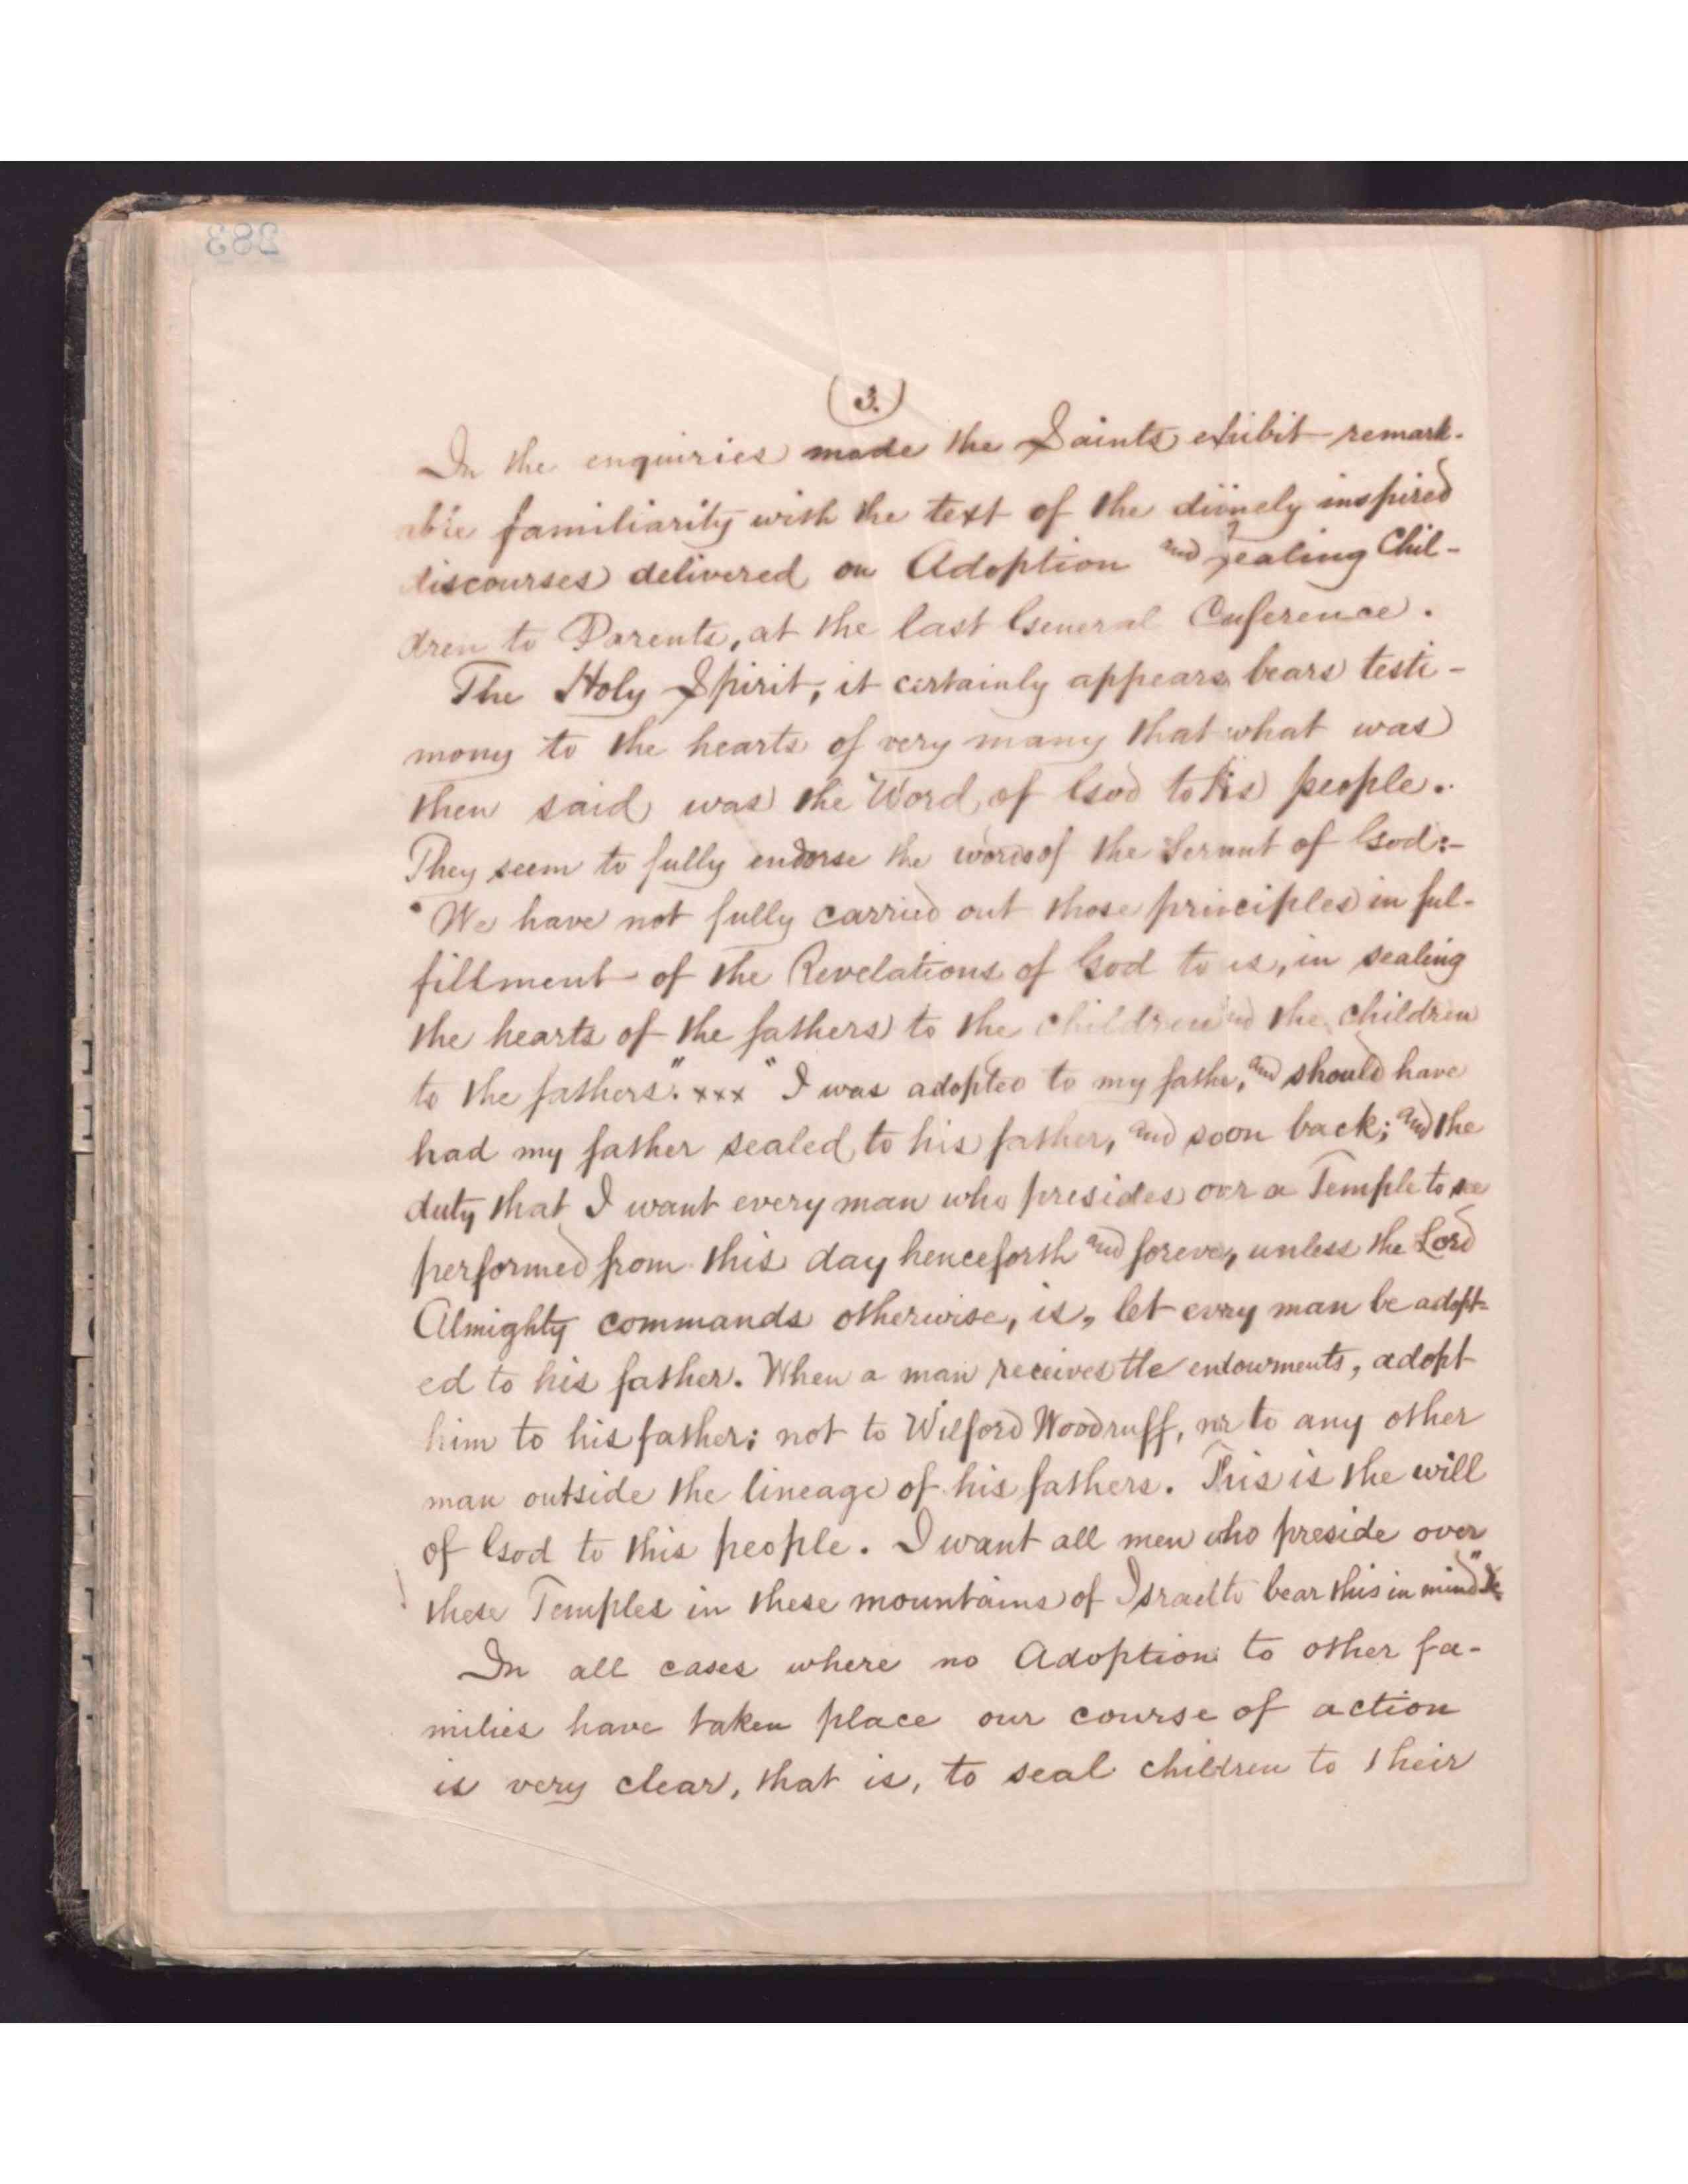 283
(3.)
In the enquiries made the Saints exhibit remark-
able familiarity with the text of the divinely inspired
discourses delivered on Adoption and Sealing Chil-
dren to Parents, at the last General Conference.
The Holy Spirit, it certainly appears, bears testi-
mony to the hearts of very many that what was
then said was the Word of God to His people.
They seem to fully endorse the words of the Servant of God:-
"We have not fully carried out those principles in ful-
fillment of the Revelations of God to us, in sealing
the hearts of the fathers to the children and the children
to the fathers". xxx "I was adopted to my father, and should have
had my father sealed to his father, and soon back; and the
duty that I want every man who presides over a Temple to see
performed from this day henceforth and forever, unless the Lord
Almighty commands otherwise, is, let every man be adopt-
ed to his father. When a man receives the endowments, adopt
him to his father; not to Wilford Woodruff, nor to any other
man outside the lineage of his fathers. This is the will
of God to this people. I want all men who preside over
these Temples in these mountains of Israel to bear this in mind"
In all cases where no Adoptions to other fa-
milies have taken place our course of action
is very clear, that is, to seal children to their